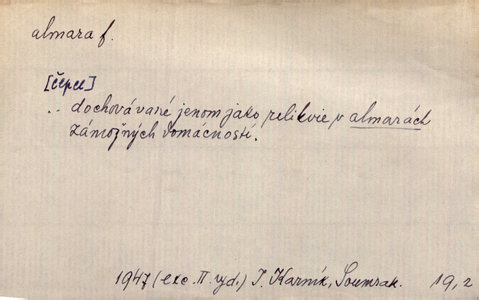 almara f.
[čepce]
.. dochovávané jenom jako relikvie v almarách
zámožných domácností.
1947 (exc. II. vyd.) J. Karník, Soumrak. 19,2